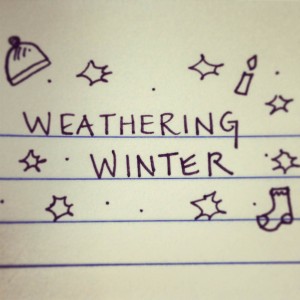 WEATHERING
WINTER